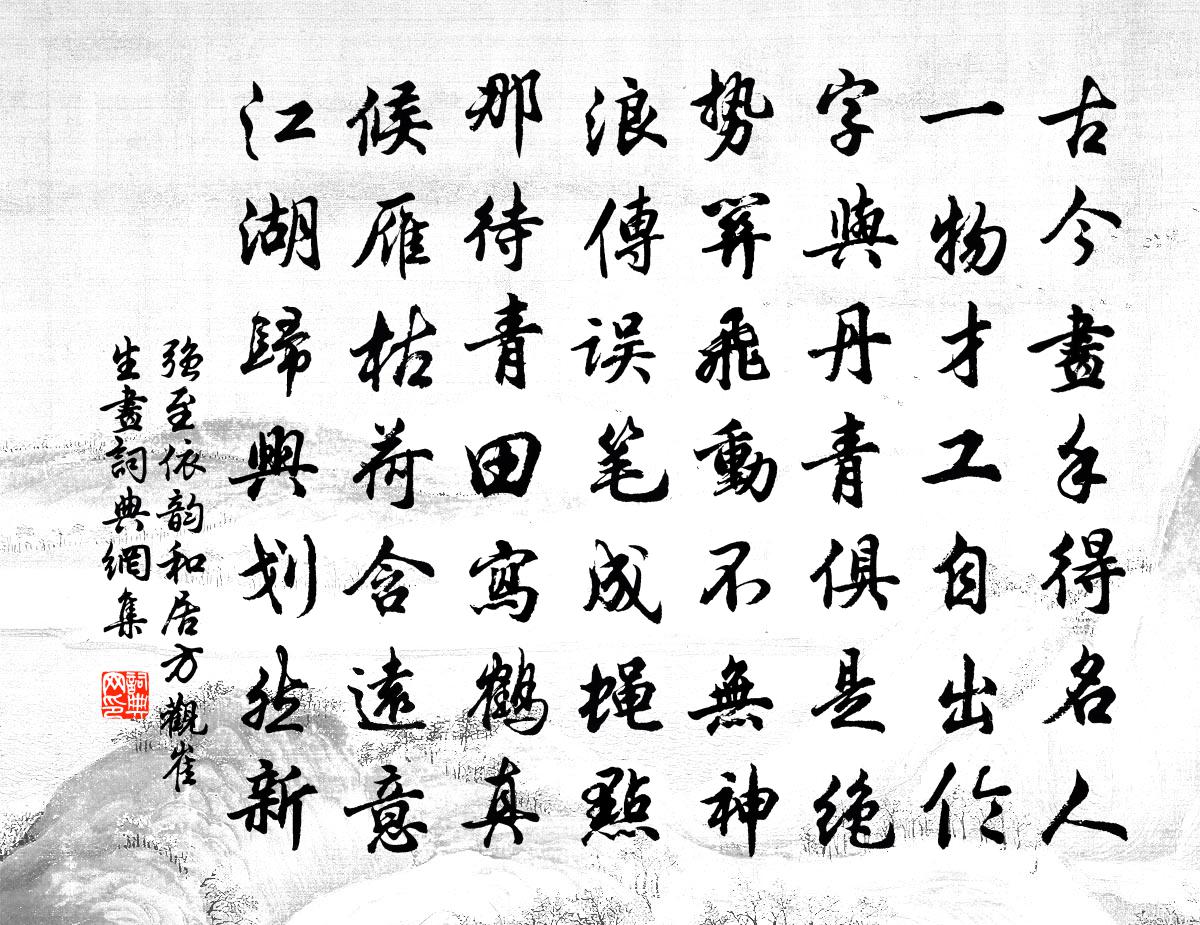 古今畫手得名人
一物才工自出伦
字與丹青俱是绝
势筭飛動不無神
浪傳误笔成蝇點
那待青田寫鹤真
候雁枯荷含遠意
江湖歸興划然新
强至依韵和居方觀崔
生畫詞典網集
詞典
网印